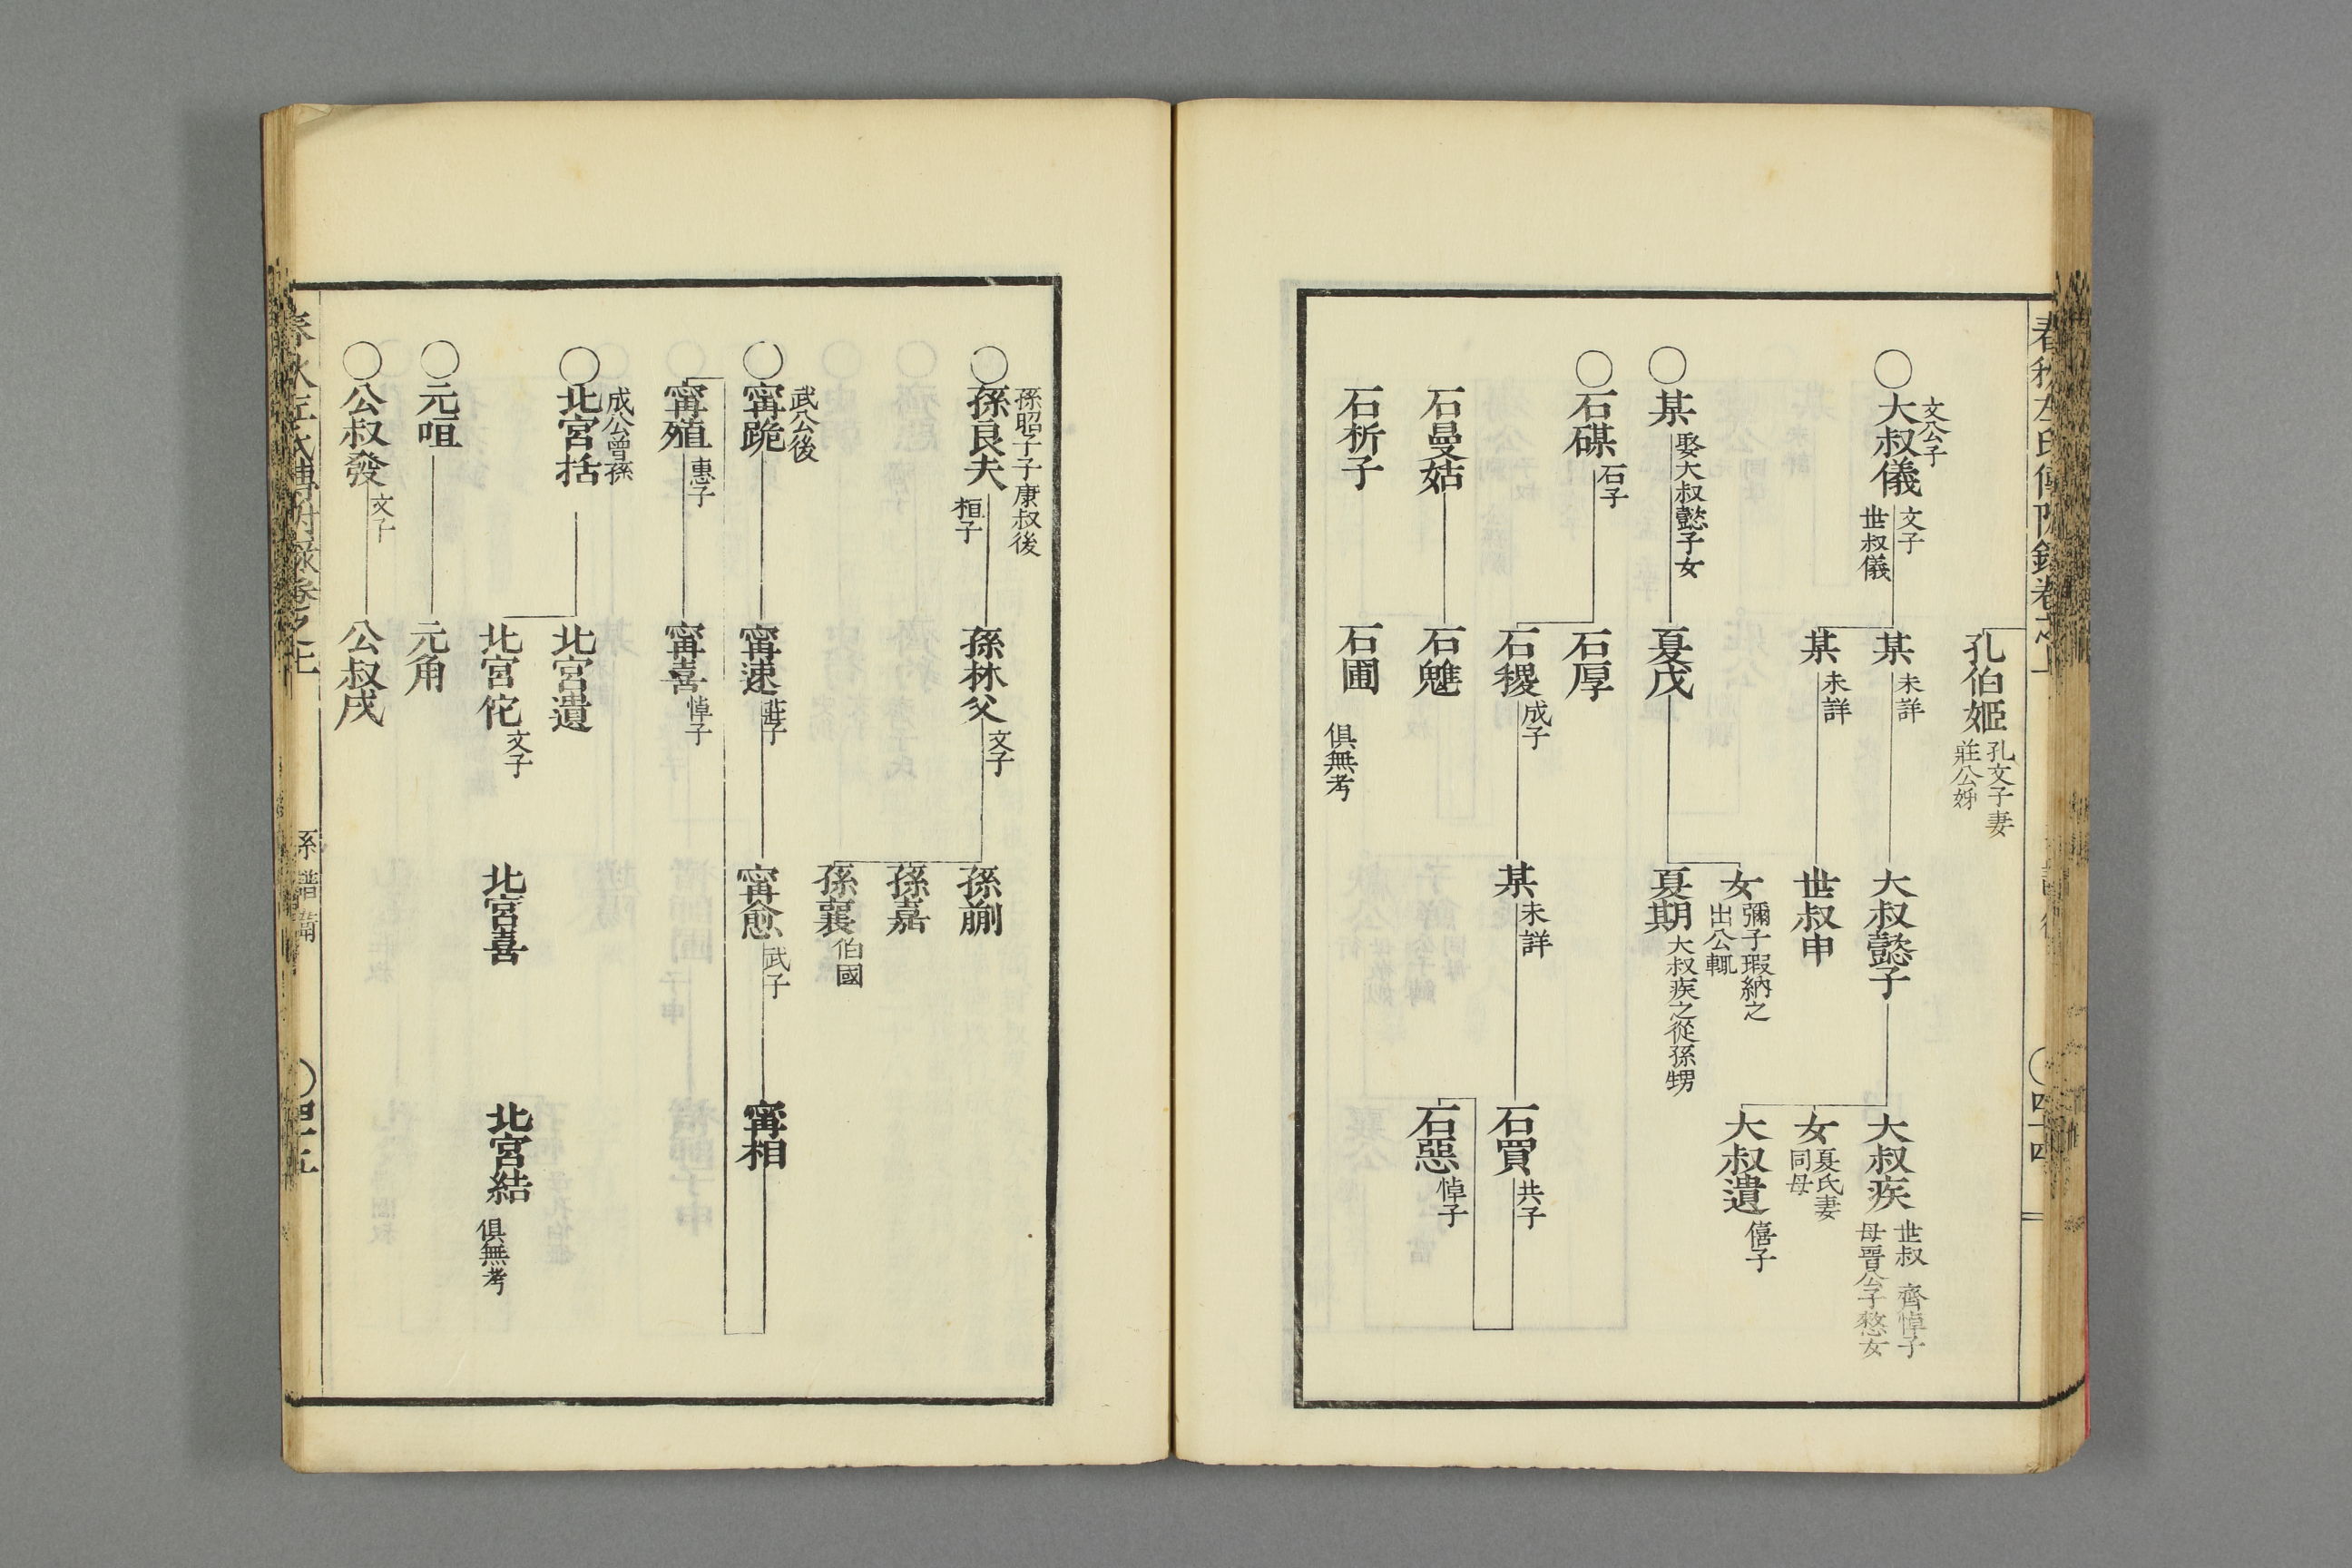 孔伯姬
孔文子妻
莊公姊
文公子
大叔儀
文子
世叔儀
某
未詳
大叔懿子
大叔疾
世叔 齊悼子
母晉公子憖女
女
夏氏妻
同母
大叔遺
僖子
某
未詳
世叔申
某
娶大叔懿子女
夏戊
女
彌子瑕納之
出公輒
夏期
大叔疾之從孫甥
石碏
石子
石厚
石稷
成子
某
未詳
石買
共子
石惡
悼子
石曼姑
石魋
石析子
石圃
俱無考
孫昭子子康叔後
孫良夫
桓子
孫林父
文子
孫蒯
孫嘉
孫襄
伯國
武公後
甯跪
甯速
莊子
甯愈
武子
甯相
甯殖
惠子
甯喜
悼子
成公曾孫
北宮括
北宮遺
北宮佗
文子
北宮喜
北宮結
俱無考
元咺
元角
公叔發
文子
公叔戌
春秋左氏傳附錄卷之上
四十五